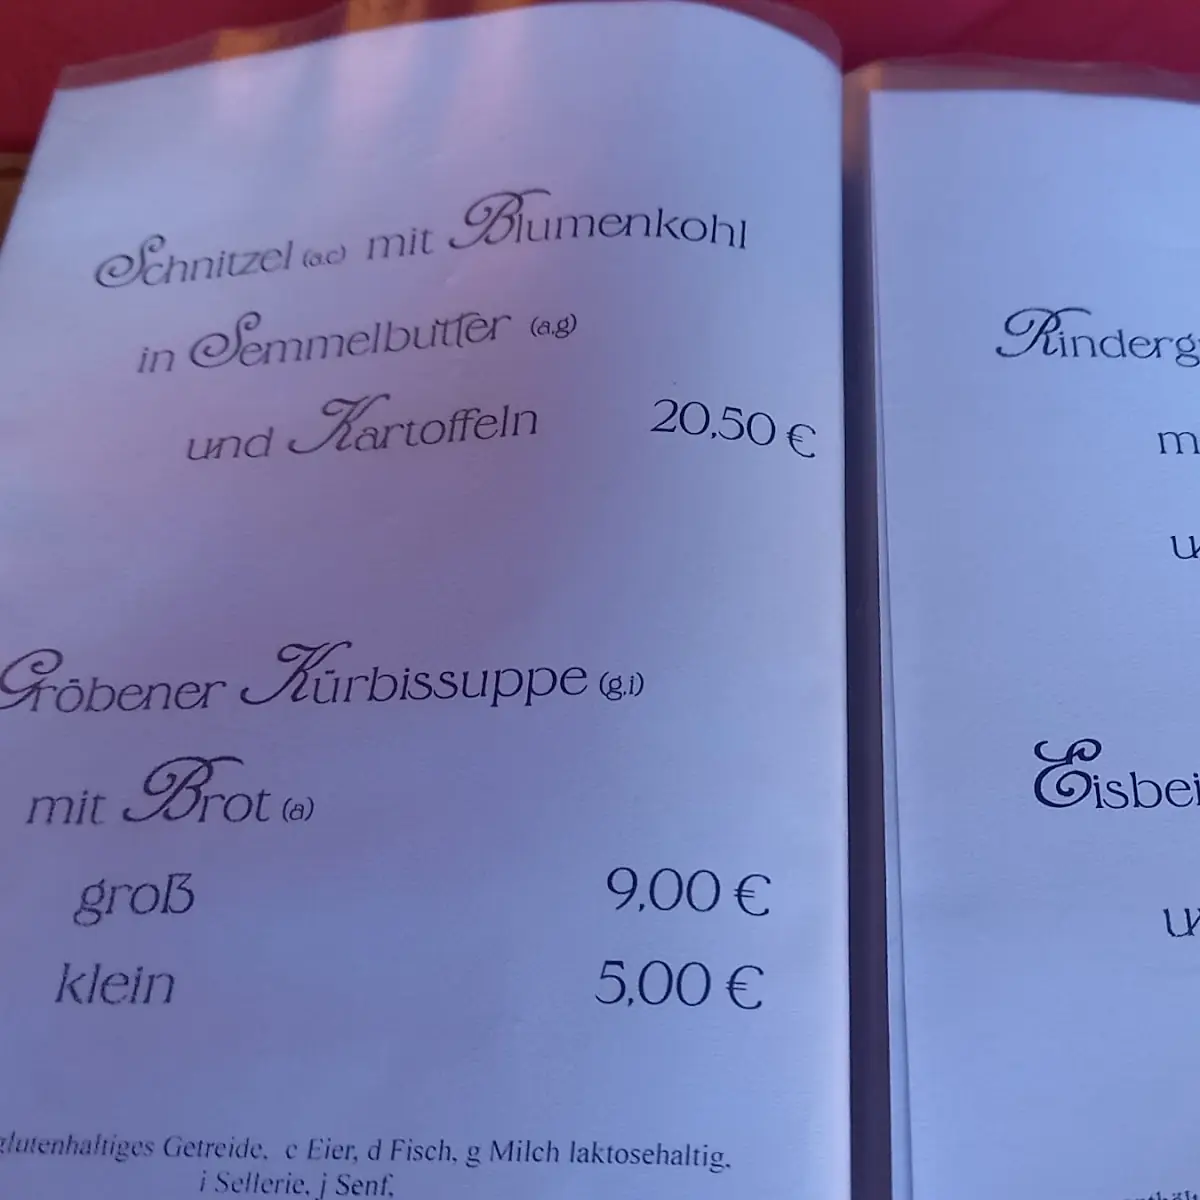 Schnitzel (a.c) mit Blumenkohl
in Semmelbutter (a.g)
und Kartoffeln 20,50 €
Gröbener Kürbissuppe (g.i)
mit Brot (a)
groß 9,00 €
klein 5,00 €
glutenhaltiges Getreide, c Eier, d Fisch, g Milch laktosehaltig,
i Sellerie, j Senf,